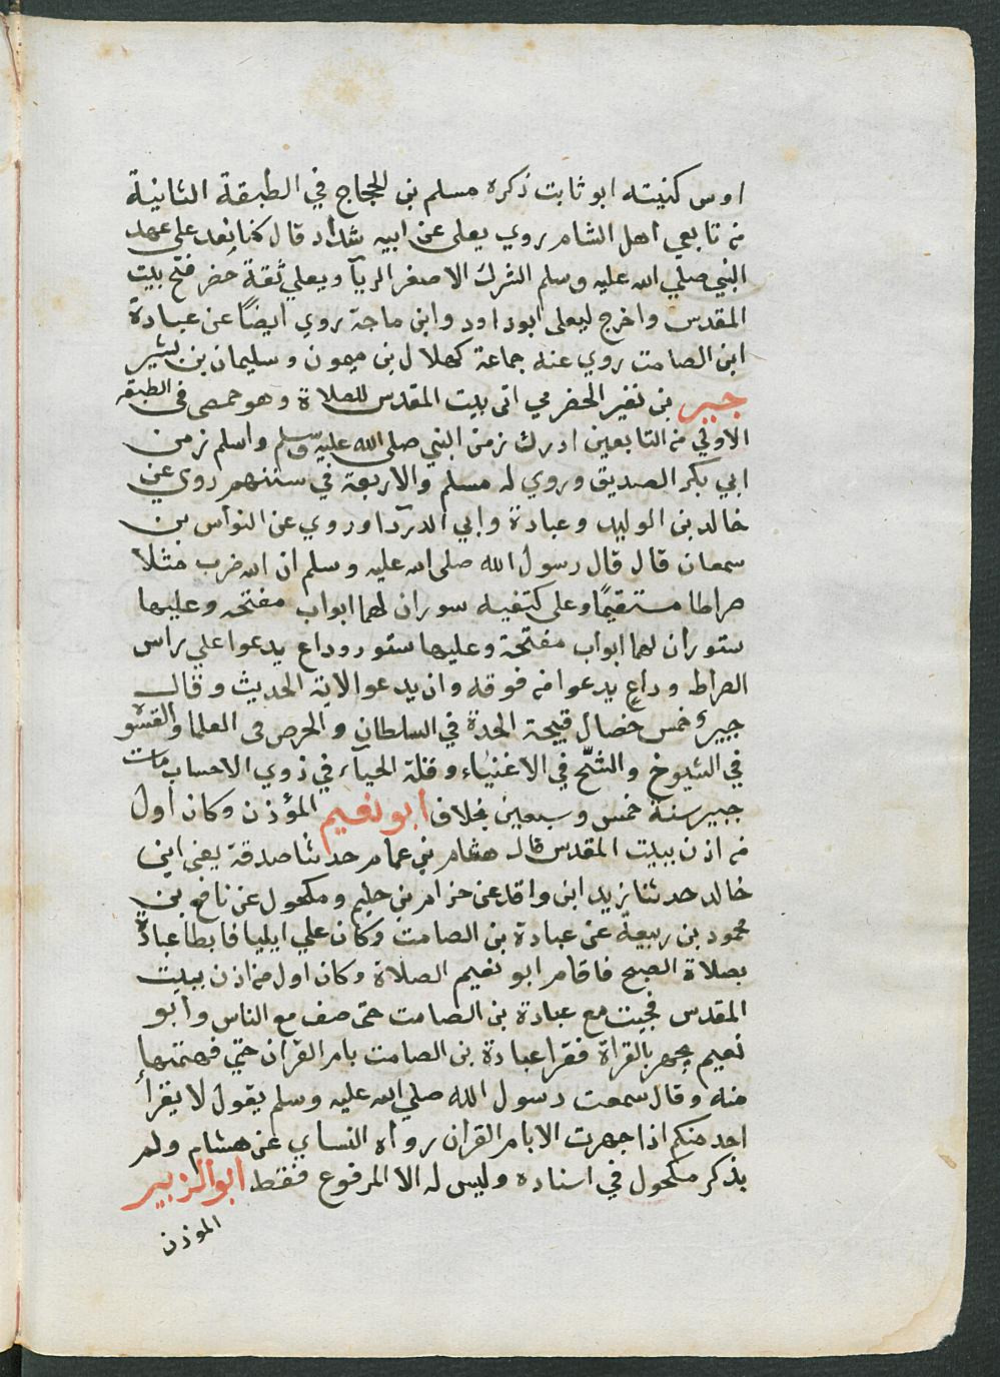 اوس كنيته ابو ثابت ذكره مسلم بن الحجاج في الطبقة الثانية
من تابعي اهل الشام روي يعلى عن ابيه شداد قال كنا نعد على عهد
النبي صلي الله عليه وسلم الشرك الاصغر الريآ ويعلي ثقة حضر فتح بيت
المقدس واخرج ليعلى ابوداود وابن ماجة روي ايضًا عن عبادة
ابن الصامت روي عنه جماعة كهلال بن ميمون وسليمان بن بشير
جبير بن نفير الحضرمي اتى بيت المقدس للصلاة وهو حمصى فى الطبقه
الاولي من التابعين ادرك زمن النبي صلى الله عليه وسلم واسلم زمن
ابي بكر الصديق وروي له مسلم والاربعة في سننهم روى عن
خالد بن الوليد وعبادة وابي الدرآدا وروي عن النواس بن
سمعان قال قال رسول الله صلى الله عليه وسلم ان الله ضرب مثلا
صراطا مستقيمًا وعلى كتفيه سوران لهما ابواب مفتحه وعليها
ستوران لهما ابواب مفتحة وعليها ستور وداع يدعوا علي راس
الصراط وداعٍ يدعوا من فوقه وان يدعو الاية الحديث وقال
جبير خمس خصال قبيحة الحدة في السلطان والحرص فى العلما والقسوة
في الشيوخ والشحّ في الاغنياء وقلة الحيآء في ذوي الاحساب مات
جبير سنة خمس وسبعين بخلاف ابو نعيم المؤذن وكان اول
من اذن ببيت المقدس قال هشام بن عمار حدثنا صدقة يعني ابن
خالد حدثنا زيد ابن واقد عن حزام بن حليم ومكحول عن نافع بن
محمود بن ربيعة عن عبادة بن الصامت وكان علي ايليا فابطا عبادة
بصلاة الصبح فاقام ابو نعيم الصلاة وكان اول من اذن ببيت
المقدس فجيت مع عبادة بن الصامت حتى صف مع الناس وابو
نعيم يجهر بالقراة فقرا عبادة بن الصامت بام القران حتي فهمتها
منه وقال سمعت رسول الله صلي الله عليه وسلم يقول لا يقرأ
احد منكم اذا جهرت الا بام القران رواه النساي عن هشام ولم
يذكر مكحول في اسناده وليس له الا المرفوع فقط ابو الزبير
الموذن